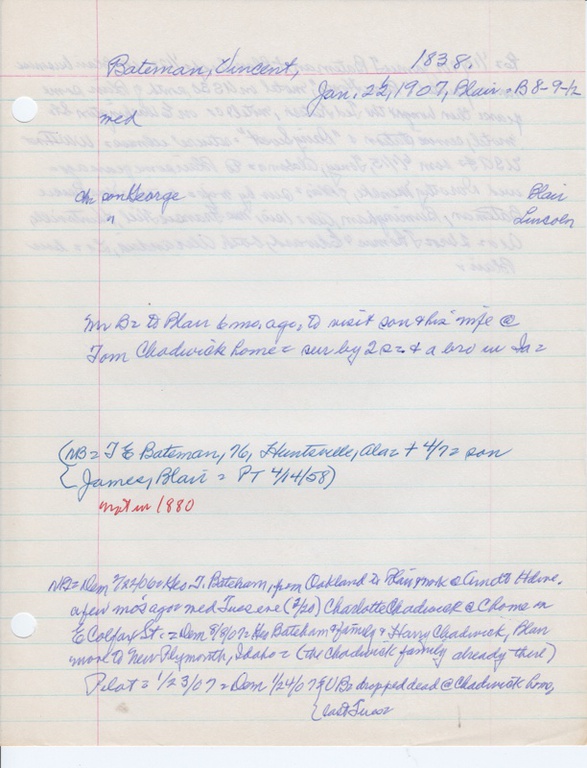 Bateman, Vincent, 1838,
Jan. 22, 1907, Blair = B 8-9-1/2
med
ch son George Blair
" Lincoln
Mr B = to Blair 6 mo. ago, to visit son & his wife @
Tom Chadwick home = sur by 2 s = & a bro in Ia =
(NB = T E Bateman, 76, Huntsville, Ala = + 4/7 = son
{ James, Blair = PT 4/14/58)
not in 1880
NB = Dem 2/22/06 = Geo. T. Bateham, from Oakland to Blair, work @ Arndt Hdwe.
a few mo's ago = med Tues eve (2/20) Charlotte Chadwick @ C home on
E Colfax St. = Dem 3/8/07 = Geo Bateham & family & Harry Chadwick, Blair
move to New Plymouth, Idaho = (the Chadwick family already there)
Pilot = 1/23/07 = Dem 1/24/07 { VB = dropped dead @ Chadwick home,
{ last Tues =